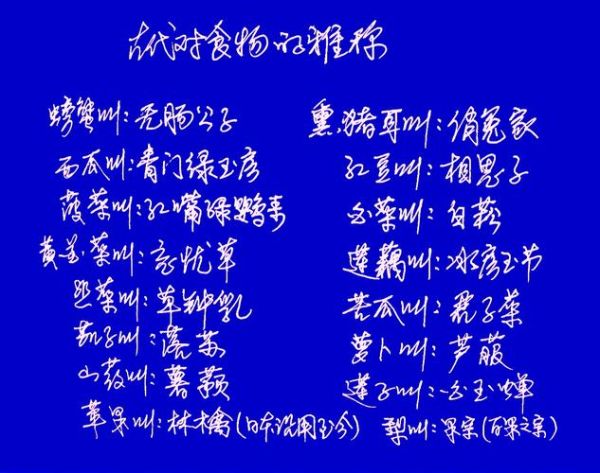 古代对食物的雅称
螃蟹叫:无肠公子
西瓜叫:青门绿玉房
菠菜叫:红嘴绿鹦哥
黄花菜叫:忘忧草
韭菜叫:草钟乳
茄子叫:落苏
山药叫:薯蓣
苹果叫:林檎(日本沿用至今)
熏猪耳叫:俏冤家
红豆叫:相思子
白菜叫:白菘
莲藕叫:冰房玉节
苦瓜叫:君子菜
萝卜叫:芦菔
莲子叫:白玉蝉
梨叫:果宗(百果之宗)